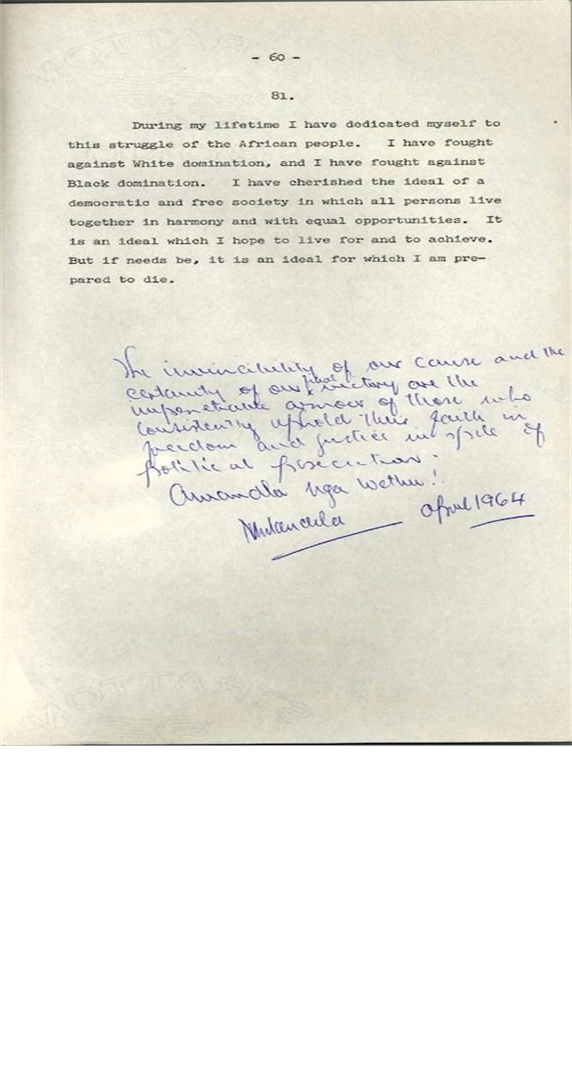 - 60 -
81.
During my lifetime I have dedicated myself to
this struggle of the African people. I have fought
against White domination, and I have fought against
Black domination. I have cherished the ideal of a
democratic and free society in which all persons live
together in harmony and with equal opportunities. It
is an ideal which I hope to live for and to achieve.
But if needs be, it is an ideal for which I am pre-
pared to die.
The invincibility of our cause and the
certainty of our final victory are the
impenetrable armour of those who
consistently uphold their faith in
freedom and justice in spite of
political persecution.
Amandla Nga Wethu!
NMandela April 1964